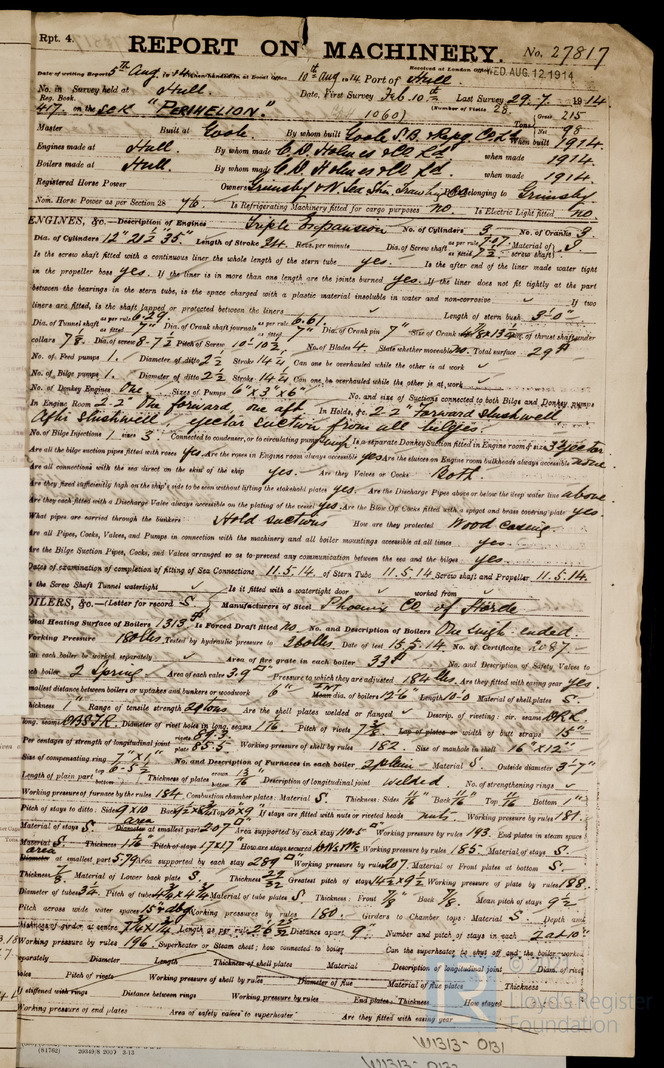 Rpt. 4.
REPORT ON MACHINERY.
No. 27817
Received at London office WED. AUG. 12 1914
Date of writing Report 5th Aug. 1914 When handed in at Local Office 10th Aug. 1914 Port of Hull.
No. in Survey held at Hull. Date, First Survey Feb. 10th Last Survey 29.7. 1914.
Reg. Book. (Number of Visits 28
417. on the SCK "PERIHELION". (1060) Tons Gross 215 Net 98
Master Built at Goole By whom built Goole S.B. & Repg Co Ld When built 1914.
Engines made at Hull. By whom made C. D. Holmes & Co Ld when made 1914.
Boilers made at Hull. By whom made C. D. Holmes & Co Ld. when made 1914.
Registered Horse Power Owners Grimsby & N. Sea Stm Trawling Port belonging to Grimsby.
Nom. Horse Power as per Section 28 76. Is Refrigerating Machinery fitted for cargo purposes no. Is Electric Light fitted no
ENGINES, &c.—Description of Engines Triple Expansion No. of Cylinders 3 No. of Cranks 3.
Dia. of Cylinders 12" 21½" 35" Length of Stroke 24. Revs. per minute Dia. of Screw shaft as per rule 7.07" as fitted 7½" Material of screw shaft S.
Is the screw shaft fitted with a continuous liner the whole length of the stern tube yes. Is the after end of the liner made water tight
in the propeller boss yes. If the liner is in more than one length are the joints burned yes. If the liner does not fit tightly at the part
between the bearings in the stern tube, is the space charged with a plastic material insoluble in water and non-corrosive ✓ If two
liners are fitted, is the shaft lapped or protected between the liners ✓ Length of stern bush 3'-0"
Dia. of Tunnel shaft as per rule 6.29. as fitted 7" Dia. of Crank shaft journals as per rule 6.61. as fitted 7" Dia. of Crank pin 7" Size of Crank webs Dia. of thrust shaft under
collars 7⅛. Dia. of screw 8-7½ Pitch of Screw 10-10½ No. of Blades 4. State whether moveable no. Total surface 29
No. of Feed pumps 1. Diameter of ditto 2½ Stroke 14¼ Can one be overhauled while the other is at work ✓
No. of Bilge pumps 1. Diameter of ditto 2½ Stroke 14¼ Can one be overhauled while the other is at work ✓
No. of Donkey Engines One Sizes of Pumps 6"x3"x6" No. and size of Suctions connected to both Bilge and Donkey pumps
In Engine Room 2-2" One forward, one aft In Holds, &c. 2-2" forward slushwell
Aft slushwell, ejector suction from all bilges.
No. of Bilge Injections 1 sizes 3" Connected to condenser, or to circulating pump pump Is a separate Donkey Suction fitted in Engine room & size 3" Ejector
Are all the bilge suction pipes fitted with roses yes. Are the roses in Engine room always accessible yes. Are the sluices on Engine room bulkheads always accessible none.
Are all connections with the sea direct on the skin of the ship yes. Are they Valves or Cocks Both.
Are they fixed sufficiently high on the ship's side to be seen without lifting the stokehold plates yes. Are the Discharge Pipes above or below the deep water line above
Are they each fitted with a Discharge Valve always accessible on the plating of the vessel yes. Are the Blow Off Cocks fitted with a spigot and brass covering plate yes.
What pipes are carried through the bunkers Hold suctions How are they protected Wood casing
Are all Pipes, Cocks, Valves, and Pumps in connection with the machinery and all boiler mountings accessible at all times yes.
Are the Bilge Suction Pipes, Cocks, and Valves arranged so as to prevent any communication between the sea and the bilges yes.
Dates of examination of completion of fitting of Sea Connections 11.5.14. of Stern Tube 11.5.14 Screw shaft and Propeller 11.5.14.
Is the Screw Shaft Tunnel watertight ✓ Is it fitted with a watertight door ✓ worked from ✓
BOILERS, &c.—(Letter for record S.) Manufacturers of Steel Phoenix Co of Hörde
Total Heating Surface of Boilers 1313 Is Forced Draft fitted no. No. and Description of Boilers One single ended.
Working Pressure 180 lbs. Tested by hydraulic pressure to 360 lbs. Date of test 15.5.14. No. of Certificate 2087.
Can each boiler be worked separately ✓ Area of fire grate in each boiler 33 No. and Description of Safety Valves to
each boiler 2 Spring Area of each valve 3.9 Pressure to which they are adjusted 184 lbs. Are they fitted with easing gear yes.
Smallest distance between boilers or uptakes and bunkers or woodwork 6" Mean dia. of boilers 12-6" Length 10-0 Material of shell plates S.
Thickness Range of tensile strength Are the shell plates welded or flanged ✓ Descrip. of riveting: cir. seams DR.L.
long. seams DBSTR. Diameter of rivet holes in long. seams 1 1/16 Pitch of rivets 7⅜ Lap of plates or width of butt straps 15"
Per centages of strength of longitudinal joint rivets 89.3 plate 85.5 Working pressure of shell by rules 182. Size of manhole in shell 16"x12"
Size of compensating ring 7"x1⅛" No. and Description of Furnaces in each boiler 2 plain Material S. Outside diameter 3-7"
Length of plain part top 6-5½ bottom Thickness of plates crown 13/16 bottom Description of longitudinal joint welded. No. of strengthening rings ✓
Working pressure of furnace by the rules 184. Combustion chamber plates: Material S. Thickness: Sides 11/16 Back 11/16 Top 11/16 Bottom 1"
Pitch of stays to ditto: Sides 9x10 Back Top 10x9½ If stays are fitted with nuts or riveted heads nuts. Working pressure by rules 181.
Material of stays S. area Diameter at smallest part 2.07 Area supported by each stay 110.5 Working pressure by rules 193. End plates in steam space:
Material S. Thickness 1 1/16 Pitch of stays 17x17" How are stays secured Working pressure by rules 185. Material of stays S.
area Diameter at smallest part 5.79 Area supported by each stay 289 Working pressure by rules 207. Material of Front plates at bottom S.
Thickness ⅞. Material of Lower back plate S. Thickness 29/32 Greatest pitch of stays 14½x9½ Working pressure of plate by rules 188.
Diameter of tubes 3¼. Pitch of tubes 4¾x4¾ Material of tube plates S. Thickness: Front ⅞ Back ⅞. Mean pitch of stays 9½
Pitch across wide water spaces 15" Working pressures by rules 180. Girders to Chamber tops: Material S. Depth and
thickness of girder at centre Length as per rule Distance apart 9". Number and pitch of stays in each 2 at 10"
Working pressure by rules 196. Superheater or Steam chest; how connected to boiler Can the superheater be shut off and the boiler worked
separately Diameter Length Thickness of shell plates Material Description of longitudinal joint Diam. of rivet
holes Pitch of rivets Working pressure of shell by rules Diameter of flue Material of flue plates Thickness
If stiffened with rings Distance between rings Working pressure by rules End plates: Thickness How stayed
Working pressure of end plates Area of safety valves to superheater Are they fitted with easing gear
© 2021
Lloyd's Register
Foundation
W1313-0131